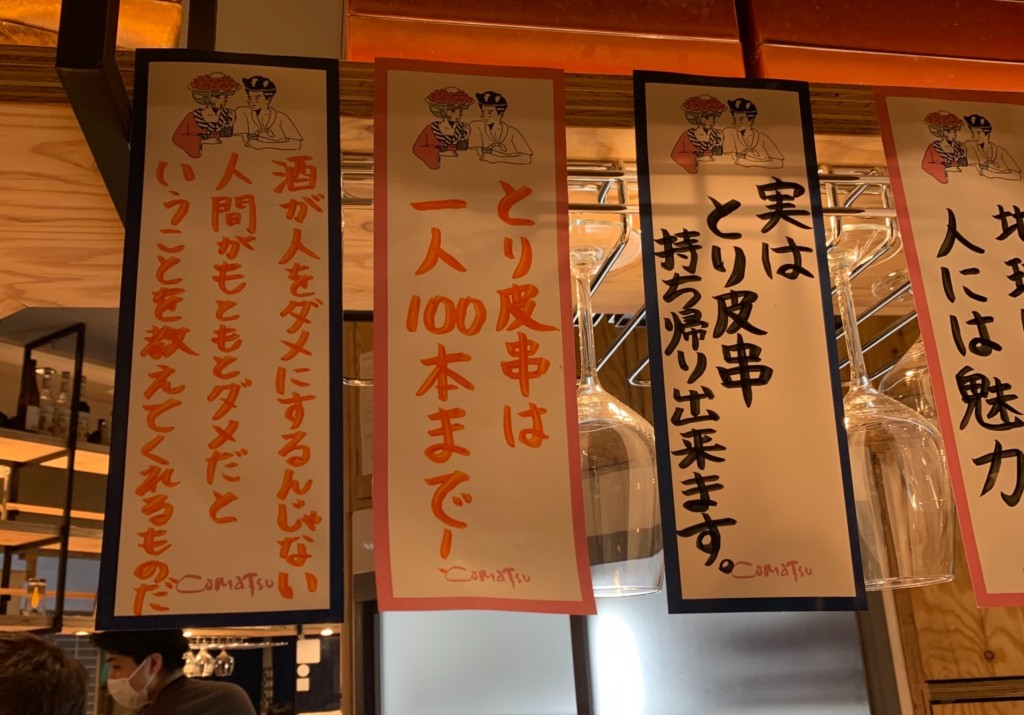 酒が人をダメにするんじゃない
人間がもともとダメだと
いうことを教えてくれるものだ
COMATSU
とり皮串は
一人100本までー
COMATSU
実は
とり皮串
持ち帰り出来ます。
COMATSU
人には魅力